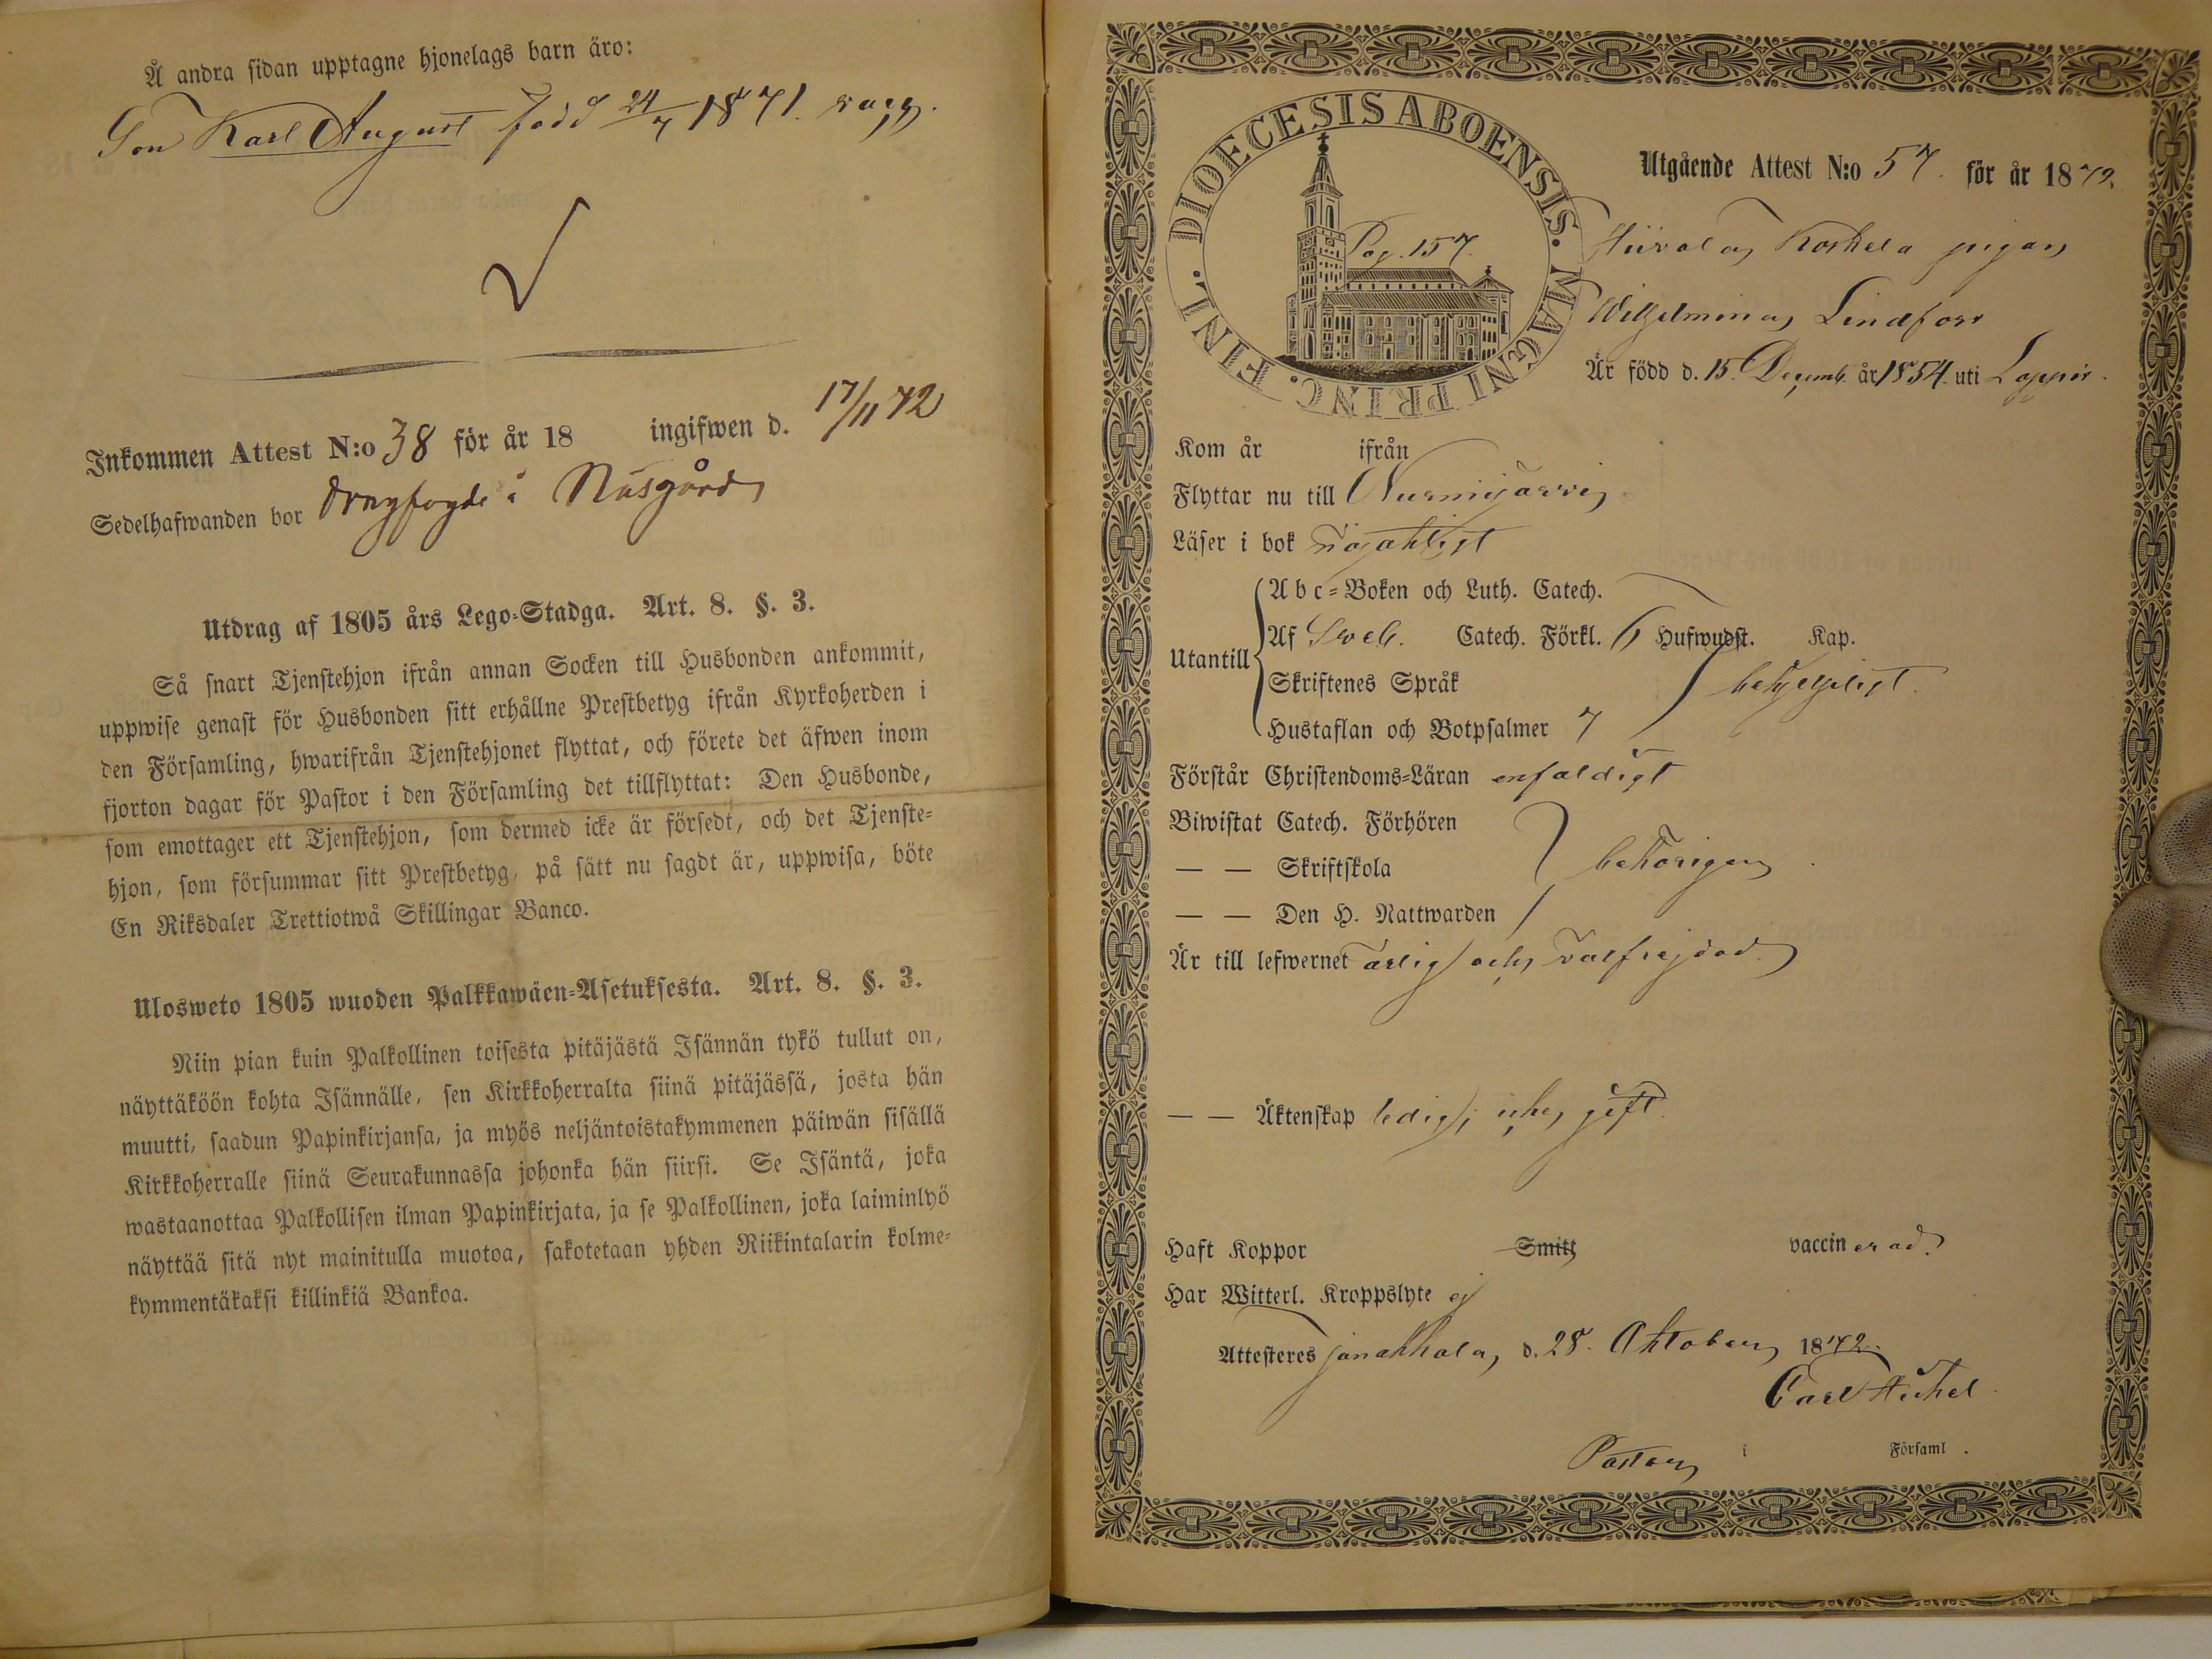 Å andra sidan upptagne hjonelags barn äro:
Son Karl August född 24/7 1871. vacc.
Inkommen Attest N:o 38 för år 18 ingifwen d. 17/11 72
Sedelhafwanden bor i Näsgård
Utdrag af 1805 års Lego-Stadga. Art. 8. §. 3.
Så snart Tjenstehjon ifrån annan Socken till Husbonden ankommit,
uppwise genast för Husbonden sitt erhållne Prestbetyg ifrån Kyrkoherden i
den Församling, hwarifrån Tjenstehjonet flyttat, och förete det äfwen inom
fjorton dagar för Pastor i den Församling det tillflyttat: Den Husbonde,
som emottager ett Tjenstehjon, som dermed icke är försedt, och det Tjenste-
hjon, som försummar sitt Prestbetyg, på sätt nu sagdt är, uppwisa, böte
En Riksdaler Trettiotwå Skillingar Banco.
Ulosweto 1805 wuoden Palkkawäen-Asetuksesta. Art. 8. §. 3.
Niin pian kuin Palkollinen toisesta pitäjästä Isännän tykö tullut on,
näyttäköön kohta Isännälle, sen Kirkkoherralta siinä pitäjässä, josta hän
muutti, saadun Papinkirjansa, ja myös neljäntoistakymmenen päiwän sisällä
Kirkkoherralle siinä Seurakunnassa johonka hän siirsi. Se Isäntä, joka
wastaanottaa Palkollisen ilman Papinkirjata, ja se Palkollinen, joka laiminlyö
näyttää sitä nyt mainitulla muotoa, sakotetaan yhden Riikintalarin kolme-
kymmentäkaksi killinkiä Bankoa.
DIOECESIS ABOENSIS. MAGNI PRINC. FINL.
Pag. 157.
Utgående Attest N:o 57. för år 1872.
Koskela pigan
Wilhelmina Lindfors
Är född d. 15 Decemb. år 1854. uti Loppis.
Kom år ifrån
Flyttar nu till Nurmijärvi
Läser i bok nöjaktigt
Utantill
Abc-Boken och Luth. Catech.
Af Sweb. Catech. Förkl. 6 Hufwudst. Kap.
Skriftenes Språk behjelpligt.
Hustaflan och Botpsalmer 7
Förstår Christendoms-Läran enfaldigt
Biwistat Catech. Förhören
— — Skriftskola behörigen
— — Den H. Nattwarden
Är till lefwernet ärlig och välfrejdad.
— — Äktenskap ledig; icke gift.
Haft Koppor Smitt vaccinerad.
Har Witterl. Kroppslyte ej
Attesteres Janakkala, d. 28. Oktober 1872.
Carl
Pastor i Församl.